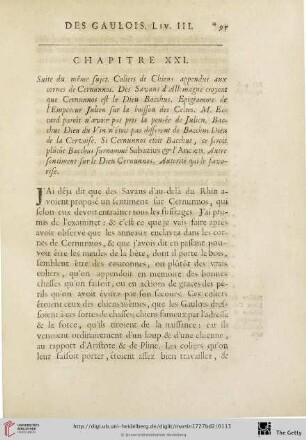 DES GAULOIS, Liv. III.
CHAPITRE XXI.
Suite du même sujet. Coliers de Chiens appendus aux
cornes de Cernunnos. Des Savans d'Allemagne croyent
que Cernunnos est le Dieu Bacchus. Epigramme de
l'Empereur Julien sur la boisson des Celtes. M. Ec-
card paroît n'avoir pas pris la pensée de Julien. Bac-
chus Dieu du Vin n'étoit pas different de Bacchus Dieu
de la Cervoise. Si Cernunnos étoit Bacchus, ce seroit
plûtôt Bacchus surnommé Sabazius & l'Ancien. Autre
sentiment sur le Dieu Cernunnos. Autorité qui le favo-
rise.
J'Ai déja dit que des Savans d'au-delà du Rhin a-
voient proposé un sentiment sur Cernunnos, qui
selon eux devoit entraîner tous les suffrages. J'ai pro-
mis de l'examiner; & c'est ce que je vais faire après
avoir observé que les anneaux enclavez dans les cor-
nes de Cernunnos, & que j'avois dit en passant pou-
voir être les meules de la bête, dont il porte le bois,
semblent être des couronnes, ou plûtôt des vrais
coliers, qu'on appendoit en memoire des bonnes
chasses qu'on faisoit, ou en actions de graces des pe-
rils qu'on avoit évitez par son secours. Ces coliers
étoient ceux des chiens mêmes, que les Gaulois dres-
soient à ces sortes de chasses; chiens fameux par l'adresse
& la force, qu'ils tiroient de la naissance: car ils
venoient ordinairement d'un loup & d'une chienne,
au rapport d'Aristote & de Pline. Les coliers qu'on
leur faisoit porter, étoient assez bien travaillez, &
UNIVERSITÄTS-
BIBLIOTHEK
HEIDELBERG
http://digi.ub.uni-heidelberg.de/diglit/martin1727bd2/0113
© Universitätsbibliothek Heidelberg
The Getty